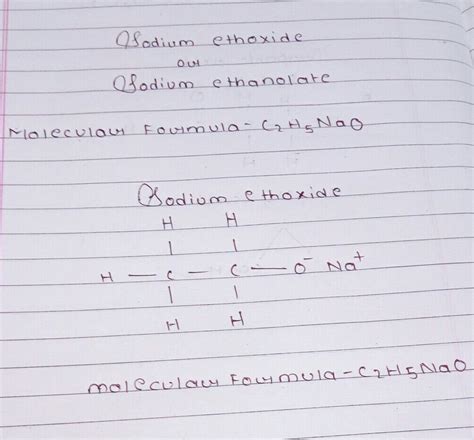 Sodium ethoxide
or
Sodium ethanolate
Molecular Formula - C2H5NaO
Sodium ethoxide
H H
| |
H — C — C — O⁻ Na⁺
| |
H H
molecular Formula - C2H5NaO